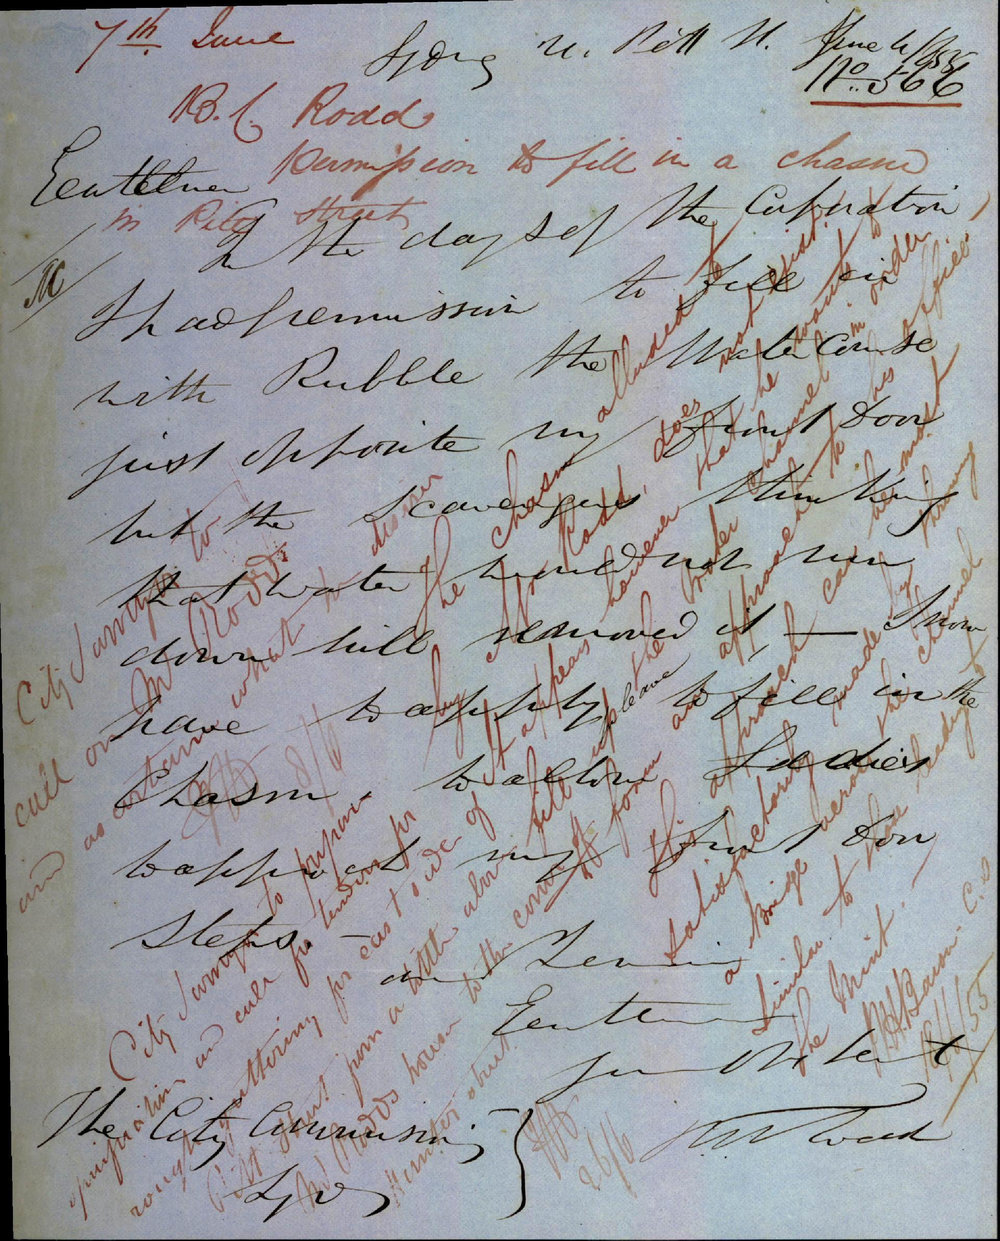 7th June
Sydney N. Pitt St. June 4/1855
No. 566
B. C. Rodd
Permission to fill in a chasm
in Pitt Street
Gentlemen
In the days of the Corporation
I had permission to fill in
with Rubble the Water Course
just opposite my front Door
but the Scavengers thinking
that water would not run
down hill removed it — I now
have to apply please to fill in the
Chasm, to allow Ladies
to approach my front Door
Steps —
and Remain
Gentlemen
your Obedient
Rodd
The City Commissioners
Sydney
City Surveyor to
call on Mr Rodd
and ascertain what
8/6
The chasm alluded to
by Mr Rodd, does not exist.
It appears however that he wants to
fill up the Water channel in order
to form an approach to his office
This approach can be most
satisfactorily made by throwing
a Bridge across the channel
similar to those leading to
the Mint.
C.S
19/6/55
City Surveyor to prepare
specification and call for tenders for
rough guttering for east side of
Pitt Street from a little above
Mr Rodds house to the corner of
Hunter street
26/6